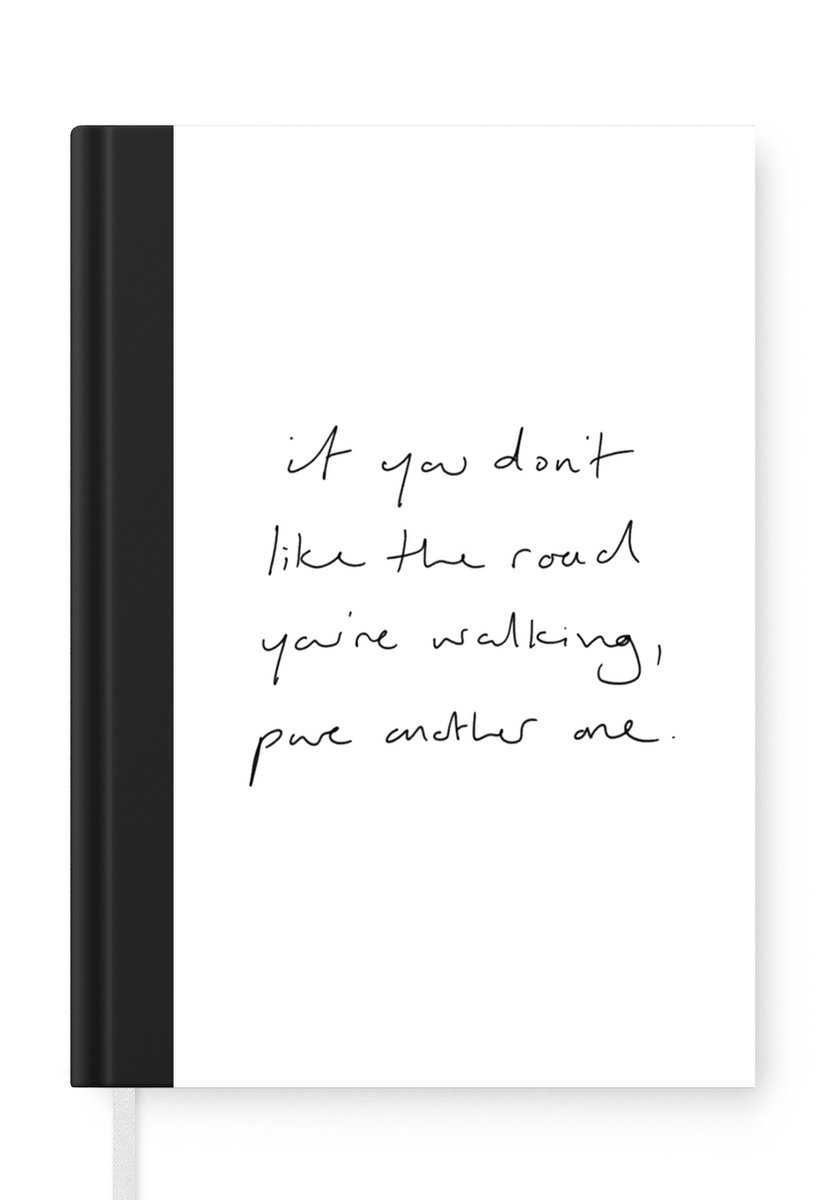 if you don't
like the road
you're walking,
pave another one.